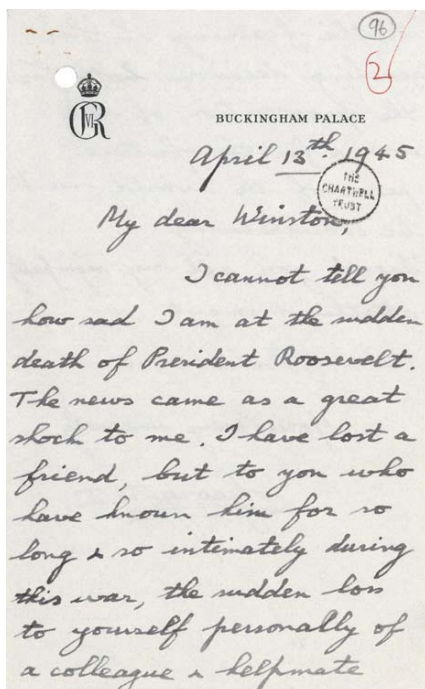 96
2
GVIR
BUCKINGHAM PALACE
April 13th. 1945
THE
CHARTWELL
TRUST
My dear Winston,
I cannot tell you
how sad I am at the sudden
death of President Roosevelt.
The news came as a great
shock to me. I have lost a
friend, but to you who
have known him for so
long & so intimately during
this war, the sudden loss
to yourself personally of
a colleague & helpmate